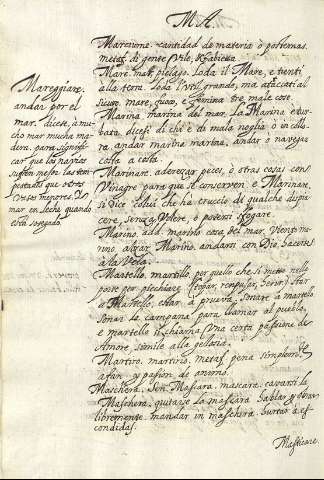 MA.
Marcione. cantidad de materia ò postemas.
metaf. di gente vile,
Mare. mar, pielago. Loda il Mare, e tienti
alla terra. Loda l'util grande, ma attaccati al
sicuro. mare, fuoco, e femina tre male cose.
Marina marina del mar. La Marina è tur-
bata. dicesi di chi è di mala voglia ò in cole-
ra. andar marina marina, andar ò navegar
costa a costa.
Marinare. aderezar peces, ò otras cosas con
Vinagre para que se conserven è Marinare
si dice colui che hà cruccio di qualche dispia-
cere, senza volere, ò potersi sfogare.
Marino. add. marino cosa del mar. Viento ma-
rino alzar Marino. andarsi con Dio, hacerse
à la Vela.
Martello. martillo, per quello che si mette nelle
porte per picchiare.
à Martello, estar à prueva. Sonare à martello
sonar la campana para llamar al pueblo.
e martello si chiama Una certa passione di
Amore simile alla gelosia.
Martiro. martirio. metaf. pena
afan y pasion de animo.
Maschera. Sen. Mascara. mascara. cavarsi la
Maschera. quitarse la mascara hablar, y obrar
libremente. mandar in maschera. hurtar à es-
condidas.
Masticare.
Mareggiare.
andar por el
mar. dicese, à mu-
cho mar mucha ma-
dera. para significar
que los navios
sufren mejor las tem-
pestades que otros
Vaseles menores. Lo
mar en leche quando
està sosegado.